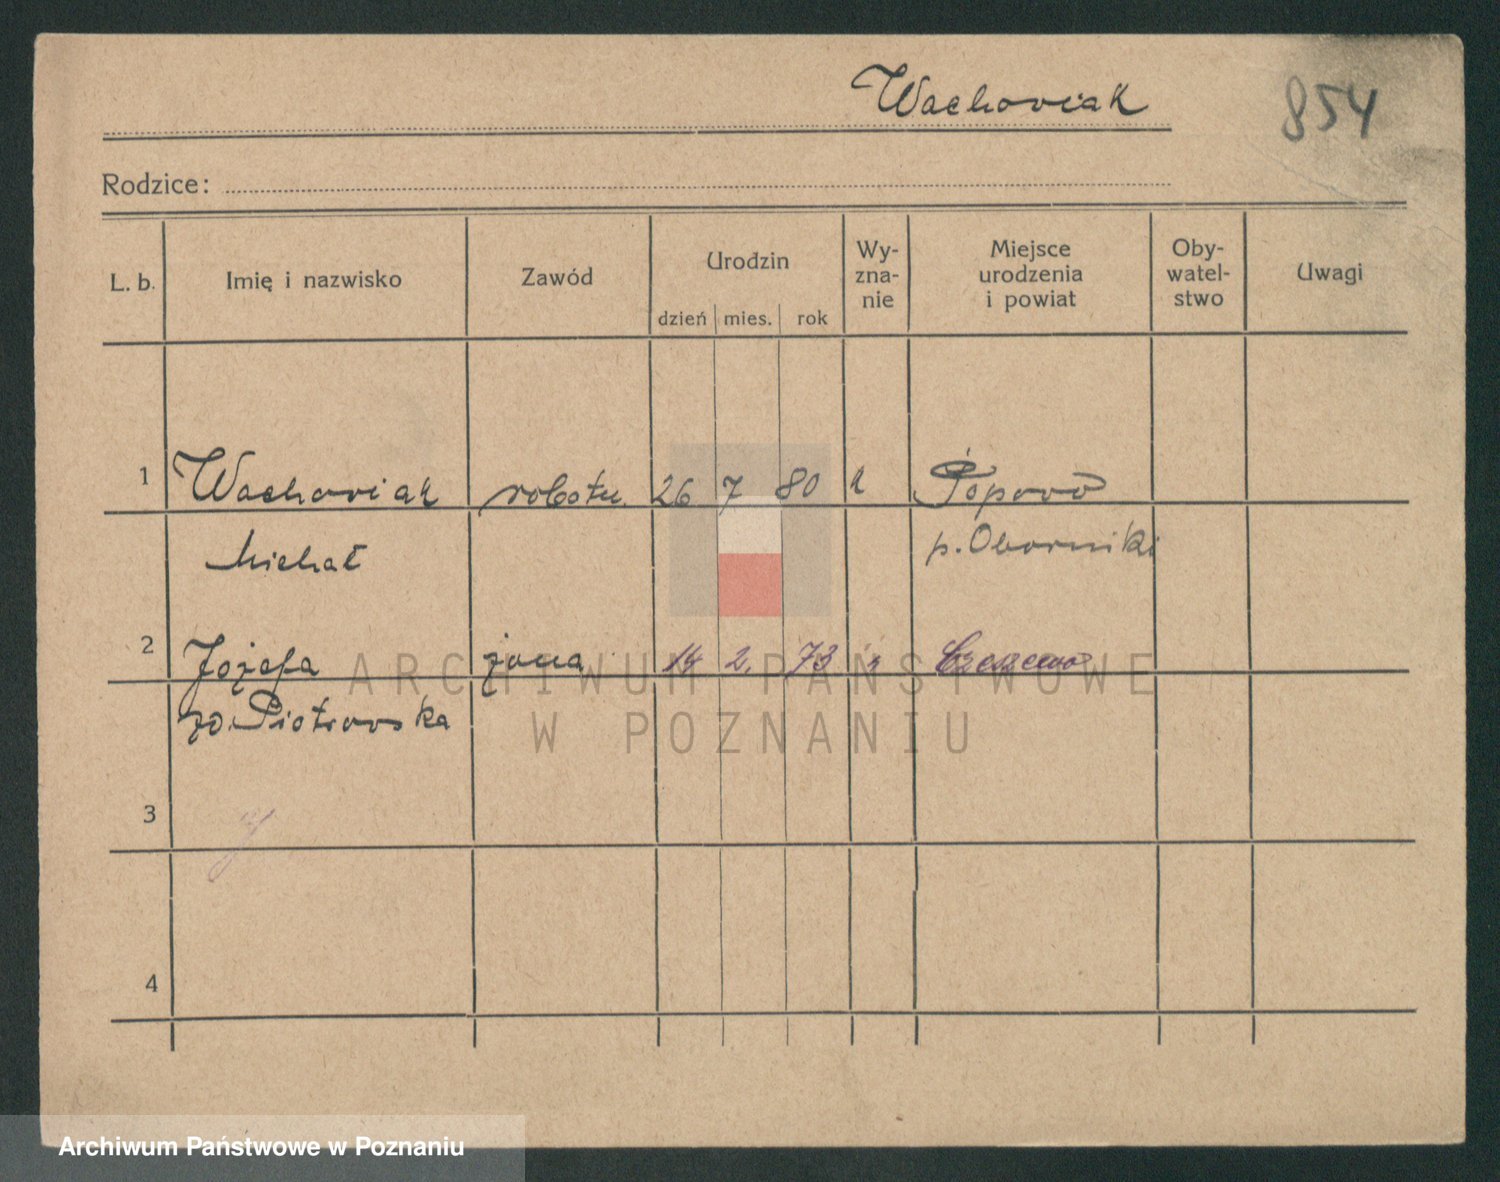 Wachowiak
854
Rodzice:
L. b.
Imię i nazwisko
Zawód
Urodzin
dzień
mies.
rok
Wy-
zna-
nie
Miejsce
urodzenia
i powiat
Oby-
watel-
stwo
Uwagi
1 Wachowiak robotn. 26 7 80 k Popowo
Michał p. Oborniki
2 Józefa żona 14 2. 73 " Czeszewo
zd. Piotrowska
3
4
ARCHIWUM PAŃSTWOWE
W POZNANIU
Archiwum Państwowe w Poznaniu